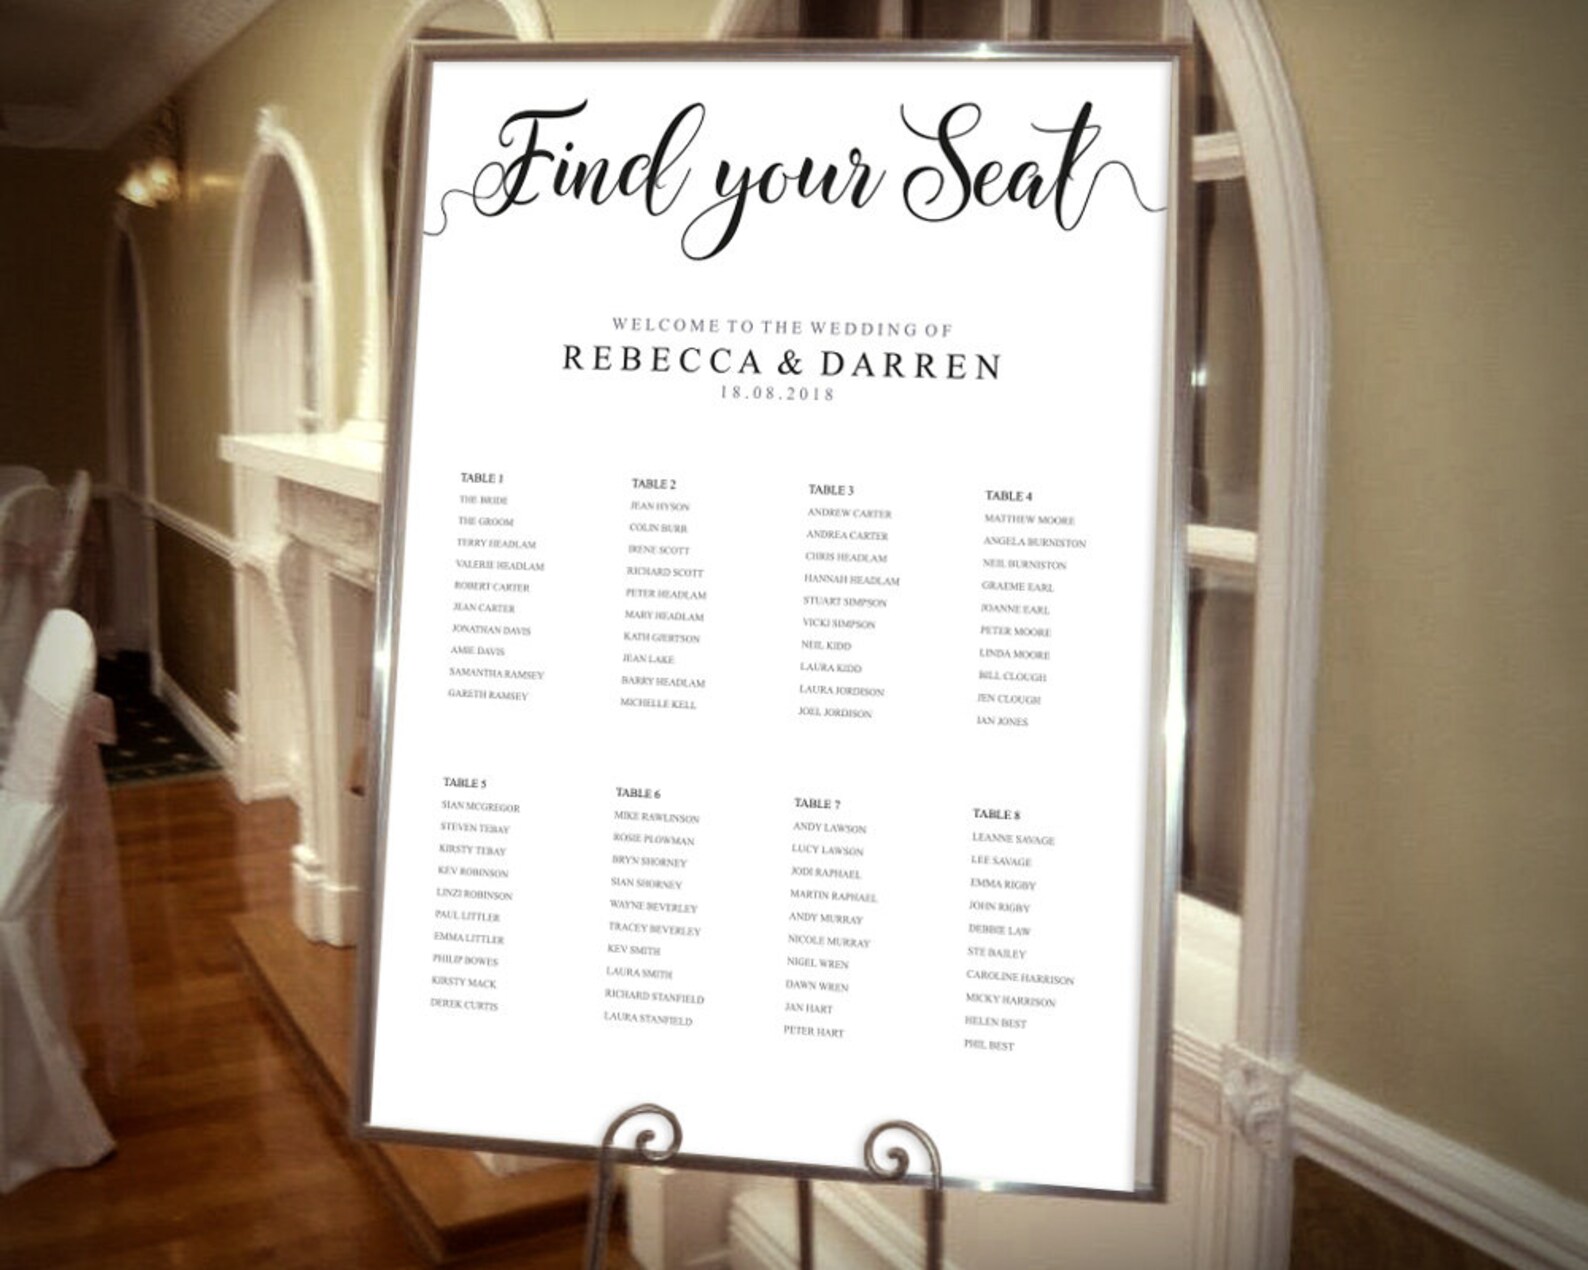 Find your Seat
WELCOME TO THE WEDDING OF
REBECCA & DARREN
18.08.2018
TABLE 1
THE BRIDE
THE GROOM
TERRY HEADLAM
VALERIE HEADLAM
ROBERT CARTER
JEAN CARTER
JONATHAN DAVIS
AMIE DAVIS
SAMANTHA RAMSEY
GARETH RAMSEY
TABLE 2
JEAN HYSON
COLIN BURR
IRENE SCOTT
RICHARD SCOTT
PETER HEADLAM
MARY HEADLAM
KATH GJERTSON
JEAN LAKE
BARRY HEADLAM
MICHELLE KELL
TABLE 3
ANDREW CARTER
ANDREA CARTER
CHRIS HEADLAM
HANNAH HEADLAM
STUART SIMPSON
VICKI SIMPSON
NEIL KIDD
LAURA KIDD
LAURA JORDISON
JOEL JORDISON
TABLE 4
MATTHEW MOORE
ANGELA BURNISTON
NEIL BURNISTON
GRAEME EARL
JOANNE EARL
PETER MOORE
LINDA MOORE
BILL CLOUGH
JEN CLOUGH
IAN JONES
TABLE 5
SIAN MCGREGOR
STEVEN TEBAY
KIRSTY TEBAY
KEV ROBINSON
LINZI ROBINSON
PAUL LITTLER
EMMA LITTLER
PHILIP BOWES
KIRSTY MACK
DEREK CURTIS
TABLE 6
MIKE RAWLINSON
ROSIE PLOWMAN
BRYN SHORNEY
SIAN SHORNEY
WAYNE BEVERLEY
TRACEY BEVERLEY
KEV SMITH
LAURA SMITH
RICHARD STANFIELD
LAURA STANFIELD
TABLE 7
ANDY LAWSON
LUCY LAWSON
JODI RAPHAEL
MARTIN RAPHAEL
ANDY MURRAY
NICOLE MURRAY
NIGEL WREN
DAWN WREN
JAN HART
PETER HART
TABLE 8
LEANNE SAVAGE
LEE SAVAGE
EMMA RIGBY
JOHN RIGBY
DEBBIE LAW
STE BAILEY
CAROLINE HARRISON
MICKY HARRISON
HELEN BEST
PHIL BEST